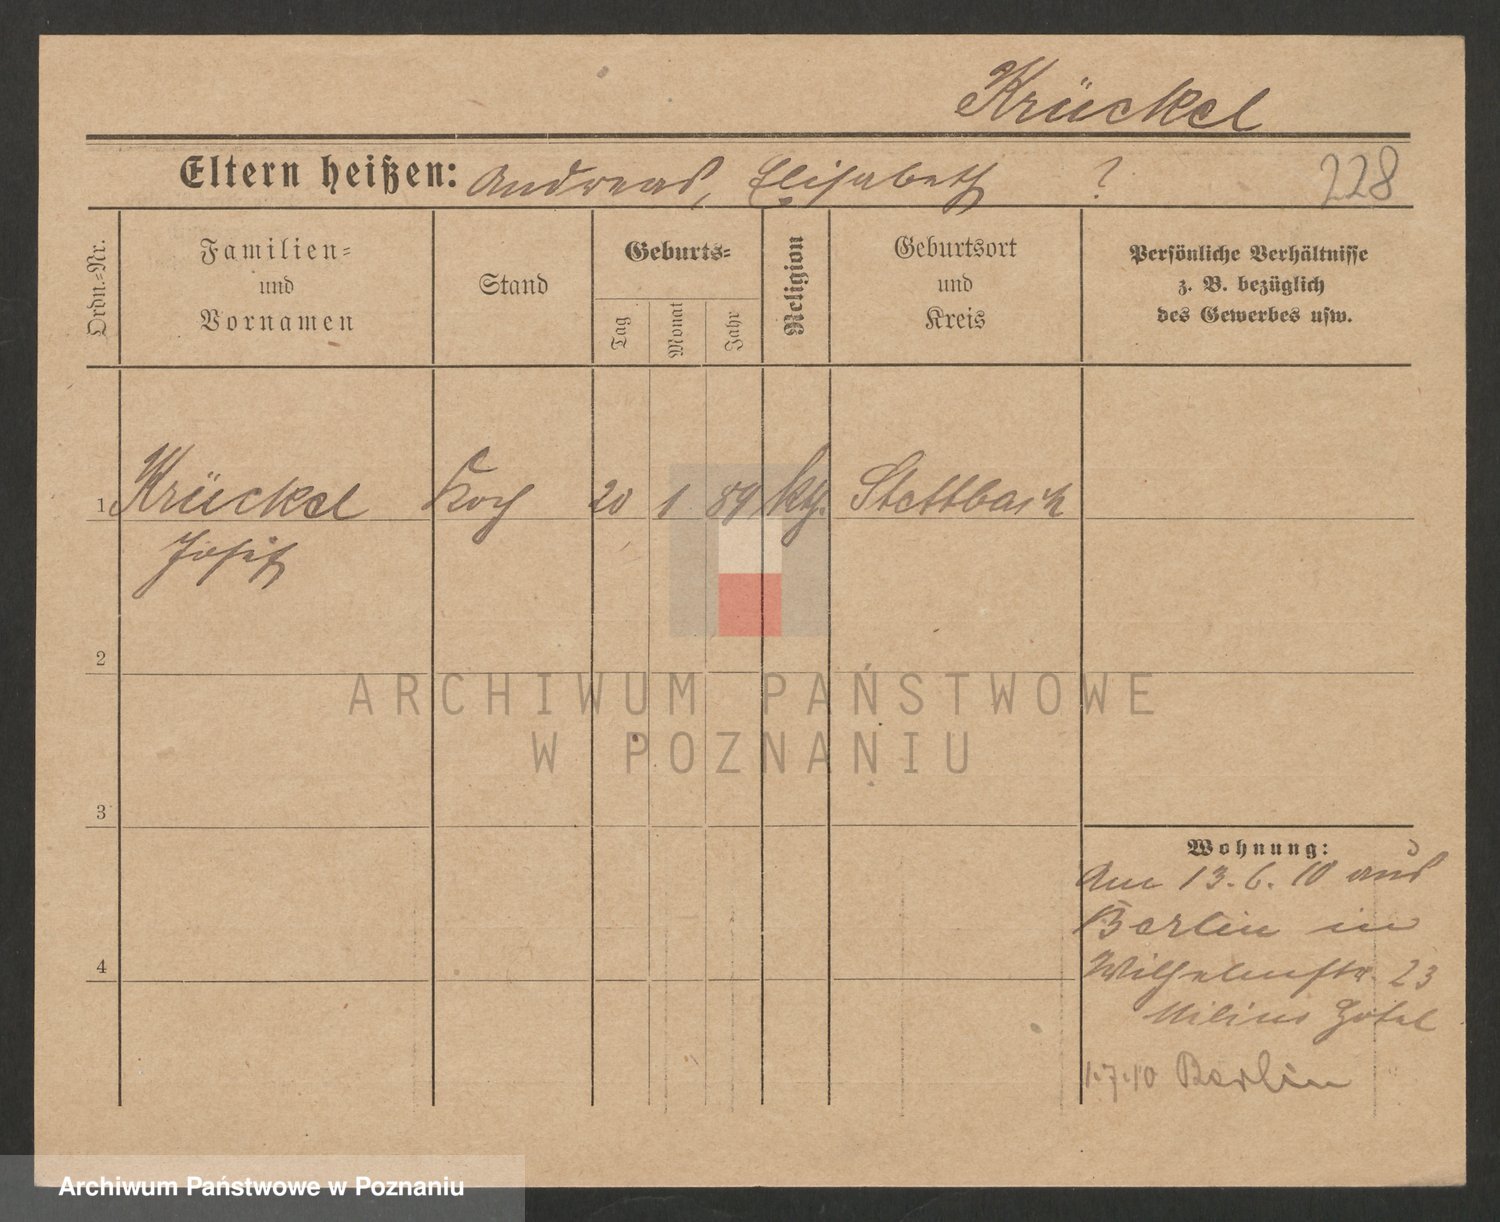 Krückel
Eltern heißen: Andreas, Elisabeth ?
228
Ordn.=Nr.
Familien=
und
Vornamen
Stand
Geburts=
Tag
Monat
Jahr
Religion
Geburtsort
und
Kreis
Persönliche Verhältnisse
z. B. bezüglich
des Gewerbes usw.
1 Krückel Koch 20 1 89 kth. Stettbach
Josef
2
ARCHIWUM PAŃSTWOWE
W POZNANIU
3
Wohnung:
Am 13.6.10 aus
Berlin in
Wilhelmstr. 23
Milius Hotel
4
1.7.10 Berlin
Archiwum Państwowe w Poznaniu